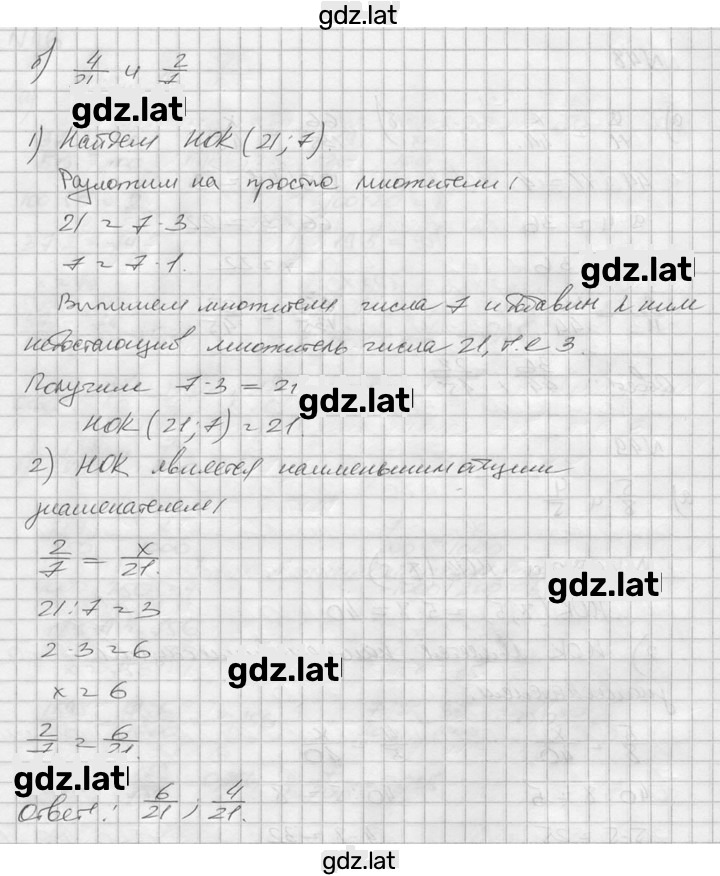 gdz.lat
б) 4/21 и 2/7
gdz.lat
1) Найдем НОК (21; 7)
Разложим на простые множители:
21 = 7 · 3.
7 = 7 · 1.
gdz.lat
Выпишем множители числа 7 и добавим к ним
недостающий множитель числа 21, т.е 3.
Получим 7 · 3 = 21
gdz.lat
НОК (21; 7) = 21
2) НОК является наименьшим общим
знаменателем:
2/7 = x/21.
gdz.lat
21 : 7 = 3
2 · 3 = 6
gdz.lat
x = 6
2/7 = 6/21.
gdz.lat
Ответ: 6/21 ; 4/21.
gdz.lat